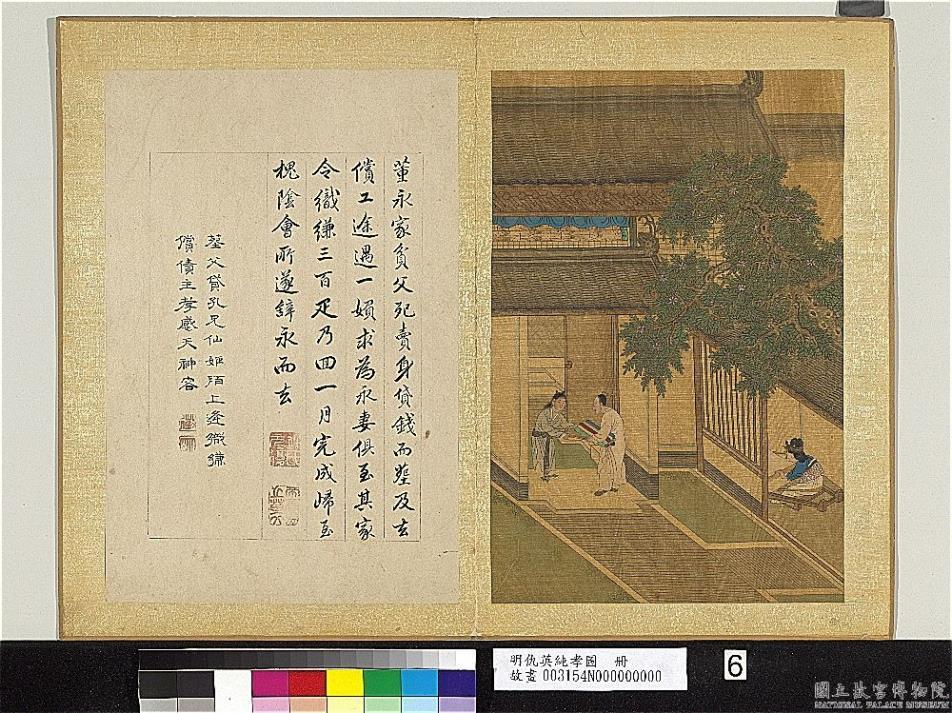 董永家貧父死賣身貸錢而塟及去
償工途遇一婦求為永妻俱至其家
令織縑三百疋乃回一月完成歸至
槐陰會所遂辤永而去
塟父貸孔兄仙姬陌上逢織縑
償債主孝感天神容
明仇英純孝圖 冊
故畫 003154N000000000
6
國立故宮博物院
NATIONAL PALACE MUSEUM